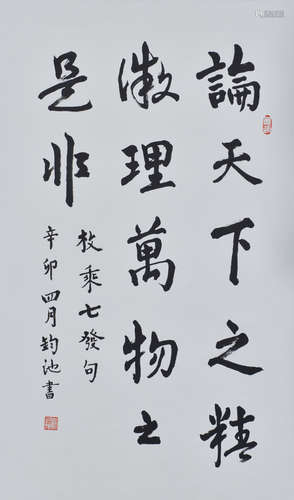 論天下之精
微理萬物之
是非
枚乘七發句
辛卯四月鈞池書